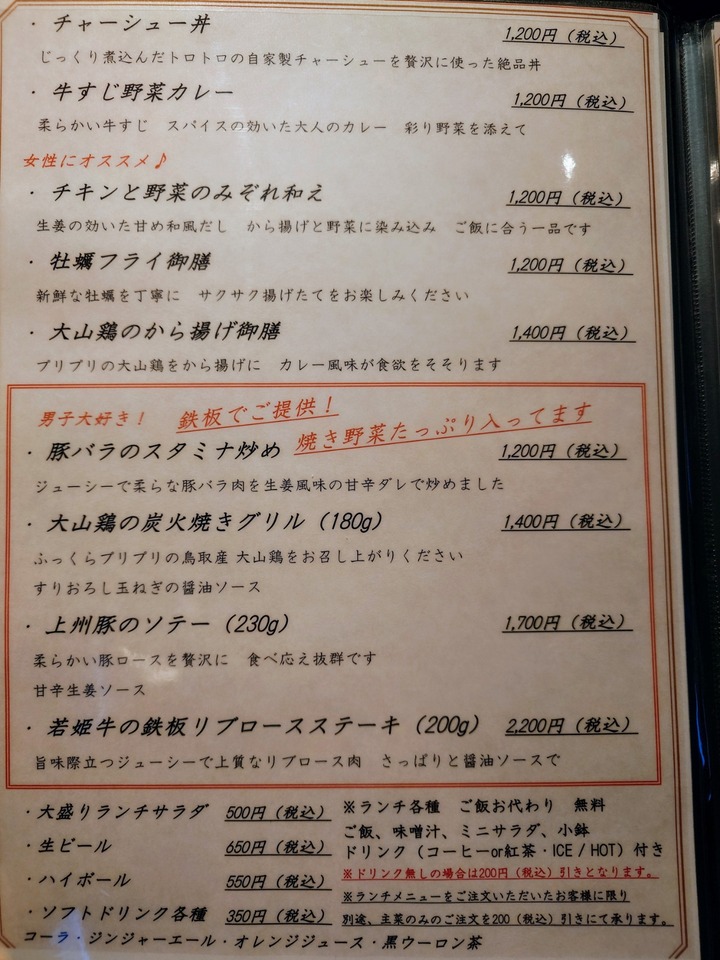 ・ チャーシュー丼 1,200円（税込）
じっくり煮込んだトロトロの自家製チャーシューを贅沢に使った絶品丼
・ 牛すじ野菜カレー 1,200円（税込）
柔らかい牛すじ　スパイスの効いた大人のカレー　彩り野菜を添えて
女性にオススメ♪
・ チキンと野菜のみぞれ和え 1,200円（税込）
生姜の効いた甘め和風だし　から揚げと野菜に染み込み　ご飯に合う一品です
・ 牡蠣フライ御膳 1,200円（税込）
新鮮な牡蠣を丁寧に　サクサク揚げたてをお楽しみください
・ 大山鶏のから揚げ御膳 1,400円（税込）
プリプリの大山鶏をから揚げに　カレー風味が食欲をそそります
男子大好き！ 鉄板でご提供！
焼き野菜たっぷり入ってます
・ 豚バラのスタミナ炒め 1,200円（税込）
ジューシーで柔らな豚バラ肉を生姜風味の甘辛ダレで炒めました
・ 大山鶏の炭火焼きグリル（180g） 1,400円（税込）
ふっくらプリプリの鳥取産 大山鶏をお召し上がりください
すりおろし玉ねぎの醤油ソース
・ 上州豚のソテー（230g） 1,700円（税込）
柔らかい豚ロースを贅沢に　食べ応え抜群です
甘辛生姜ソース
・ 若姫牛の鉄板リブロースステーキ（200g） 2,200円（税込）
旨味際立つジューシーで上質なリブロース肉　さっぱりと醤油ソースで
・大盛りランチサラダ 500円（税込）
・生ビール 650円（税込）
・ハイボール 550円（税込）
・ソフトドリンク各種 350円（税込）
コーラ・ジンジャーエール・オレンジジュース・黒ウーロン茶
※ランチ各種　ご飯お代わり　無料
ご飯、味噌汁、ミニサラダ、小鉢
ドリンク（コーヒーor紅茶・ICE / HOT）付き
※ドリンク無しの場合は200円（税込）引きとなります。
※ランチメニューをご注文いただいたお客様に限り
別途、主菜のみのご注文を200（税込）引きにて承ります。